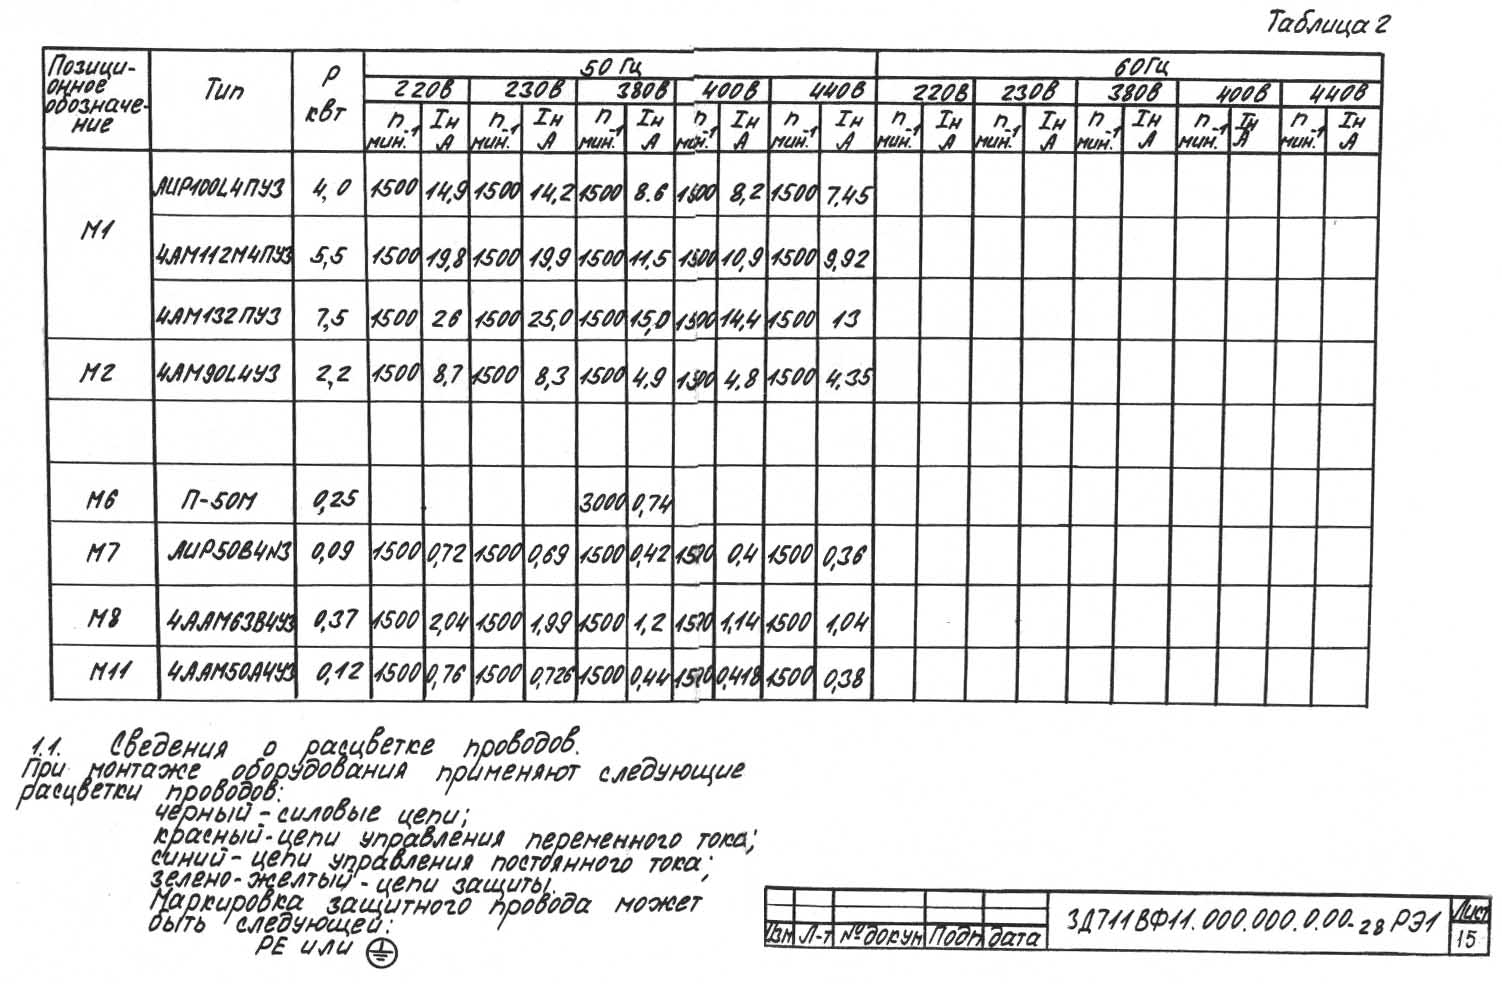 Таблица 2
Позици-
онное
обозначе-
ние
Тип
Р
квт
50 Гц
60Гц
220В 230В 380В 400В 440В 220В 230В 380В 400В 440В
n мин.⁻¹ Iн А n мин.⁻¹ Iн А n мин.⁻¹ Iн А n мин.⁻¹ Iн А n мин.⁻¹ Iн А n мин.⁻¹ Iн А n мин.⁻¹ Iн А n мин.⁻¹ Iн А n мин.⁻¹ Iн А n мин.⁻¹ Iн А
М1
АИР100L4ПУЗ 4,0 1500 14,9 1500 14,2 1500 8.6 1500 8,2 1500 7,45
4АМ112М4ПУЗ 5,5 1500 19,8 1500 19,9 1500 11,5 1500 10,9 1500 9,92
4АМ132ПУЗ 7,5 1500 26 1500 25,0 1500 15,0 1500 14,4 1500 13
М2 4АМ90L4УЗ 2,2 1500 8,7 1500 8,3 1500 4,9 1500 4,8 1500 4,35
М6 П-50М 0,25 3000 0,74
М7 АИР50В4NЗ 0,09 1500 0,72 1500 0,69 1500 0,42 1500 0,4 1500 0,36
М8 4ААМ63В4УЗ 0,37 1500 2,04 1500 1,99 1500 1,2 1500 1,14 1500 1,04
М11 4ААМ50А4УЗ 0,12 1500 0,76 1500 0,726 1500 0,44 1500 0,418 1500 0,38
1.1. Сведения о расцветке проводов.
При монтаже оборудования применяют следующие
расцветки проводов:
черный - силовые цепи;
красный - цепи управления переменного тока;
синий - цепи управления постоянного тока;
зелено-желтый - цепи защиты.
Маркировка защитного провода может
быть следующей:
РЕ или
Изм Л-т №докум Подп дата
3Д711ВФ11.000.000.0.00-28 РЭ1
Лист
15